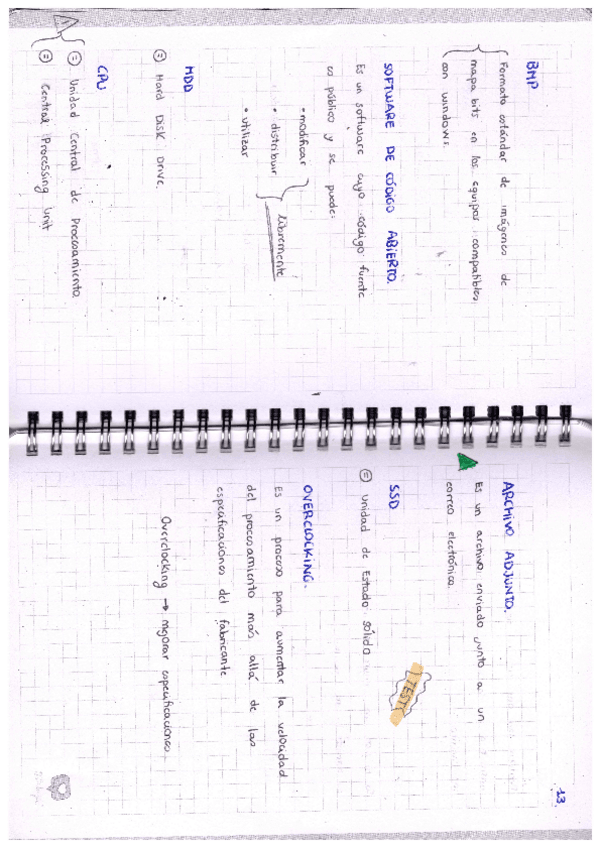 BMP
Formato estándar de imágenes de
mapa bits en los equipos compatibles
con windows.
SOFTWARE DE CÓDIGO ABIERTO.
Es un software cuyo código fuente
es público y se puede:
• modificar
• distribuir
• utilizar
libremente
HDD
= Hard Disk Drive.
CPU
= Unidad Central de Procesamiento
= Central Processing Unit
13
ARCHIVO ADJUNTO.
Es un archivo enviado junto a un
correo electrónico.
SSD
= Unidad de Estado sólido
TEST
OVERCLOCKING.
Es un proceso para aumentar la velocidad
del procesamiento más allá de las
especificaciones del fabricante
Overclocking → mejorar especificaciones